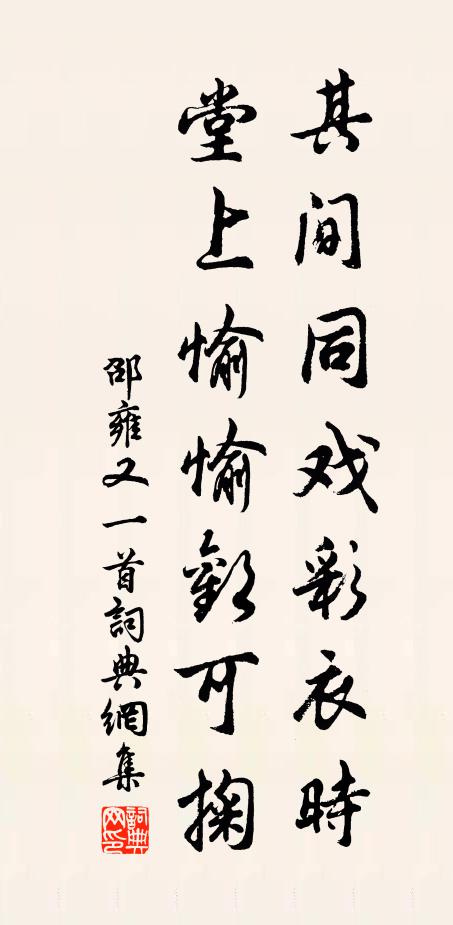 其间同戏彩衣時
堂上愉愉歡可掬
邵雍又一首詞典網集
詞典網印